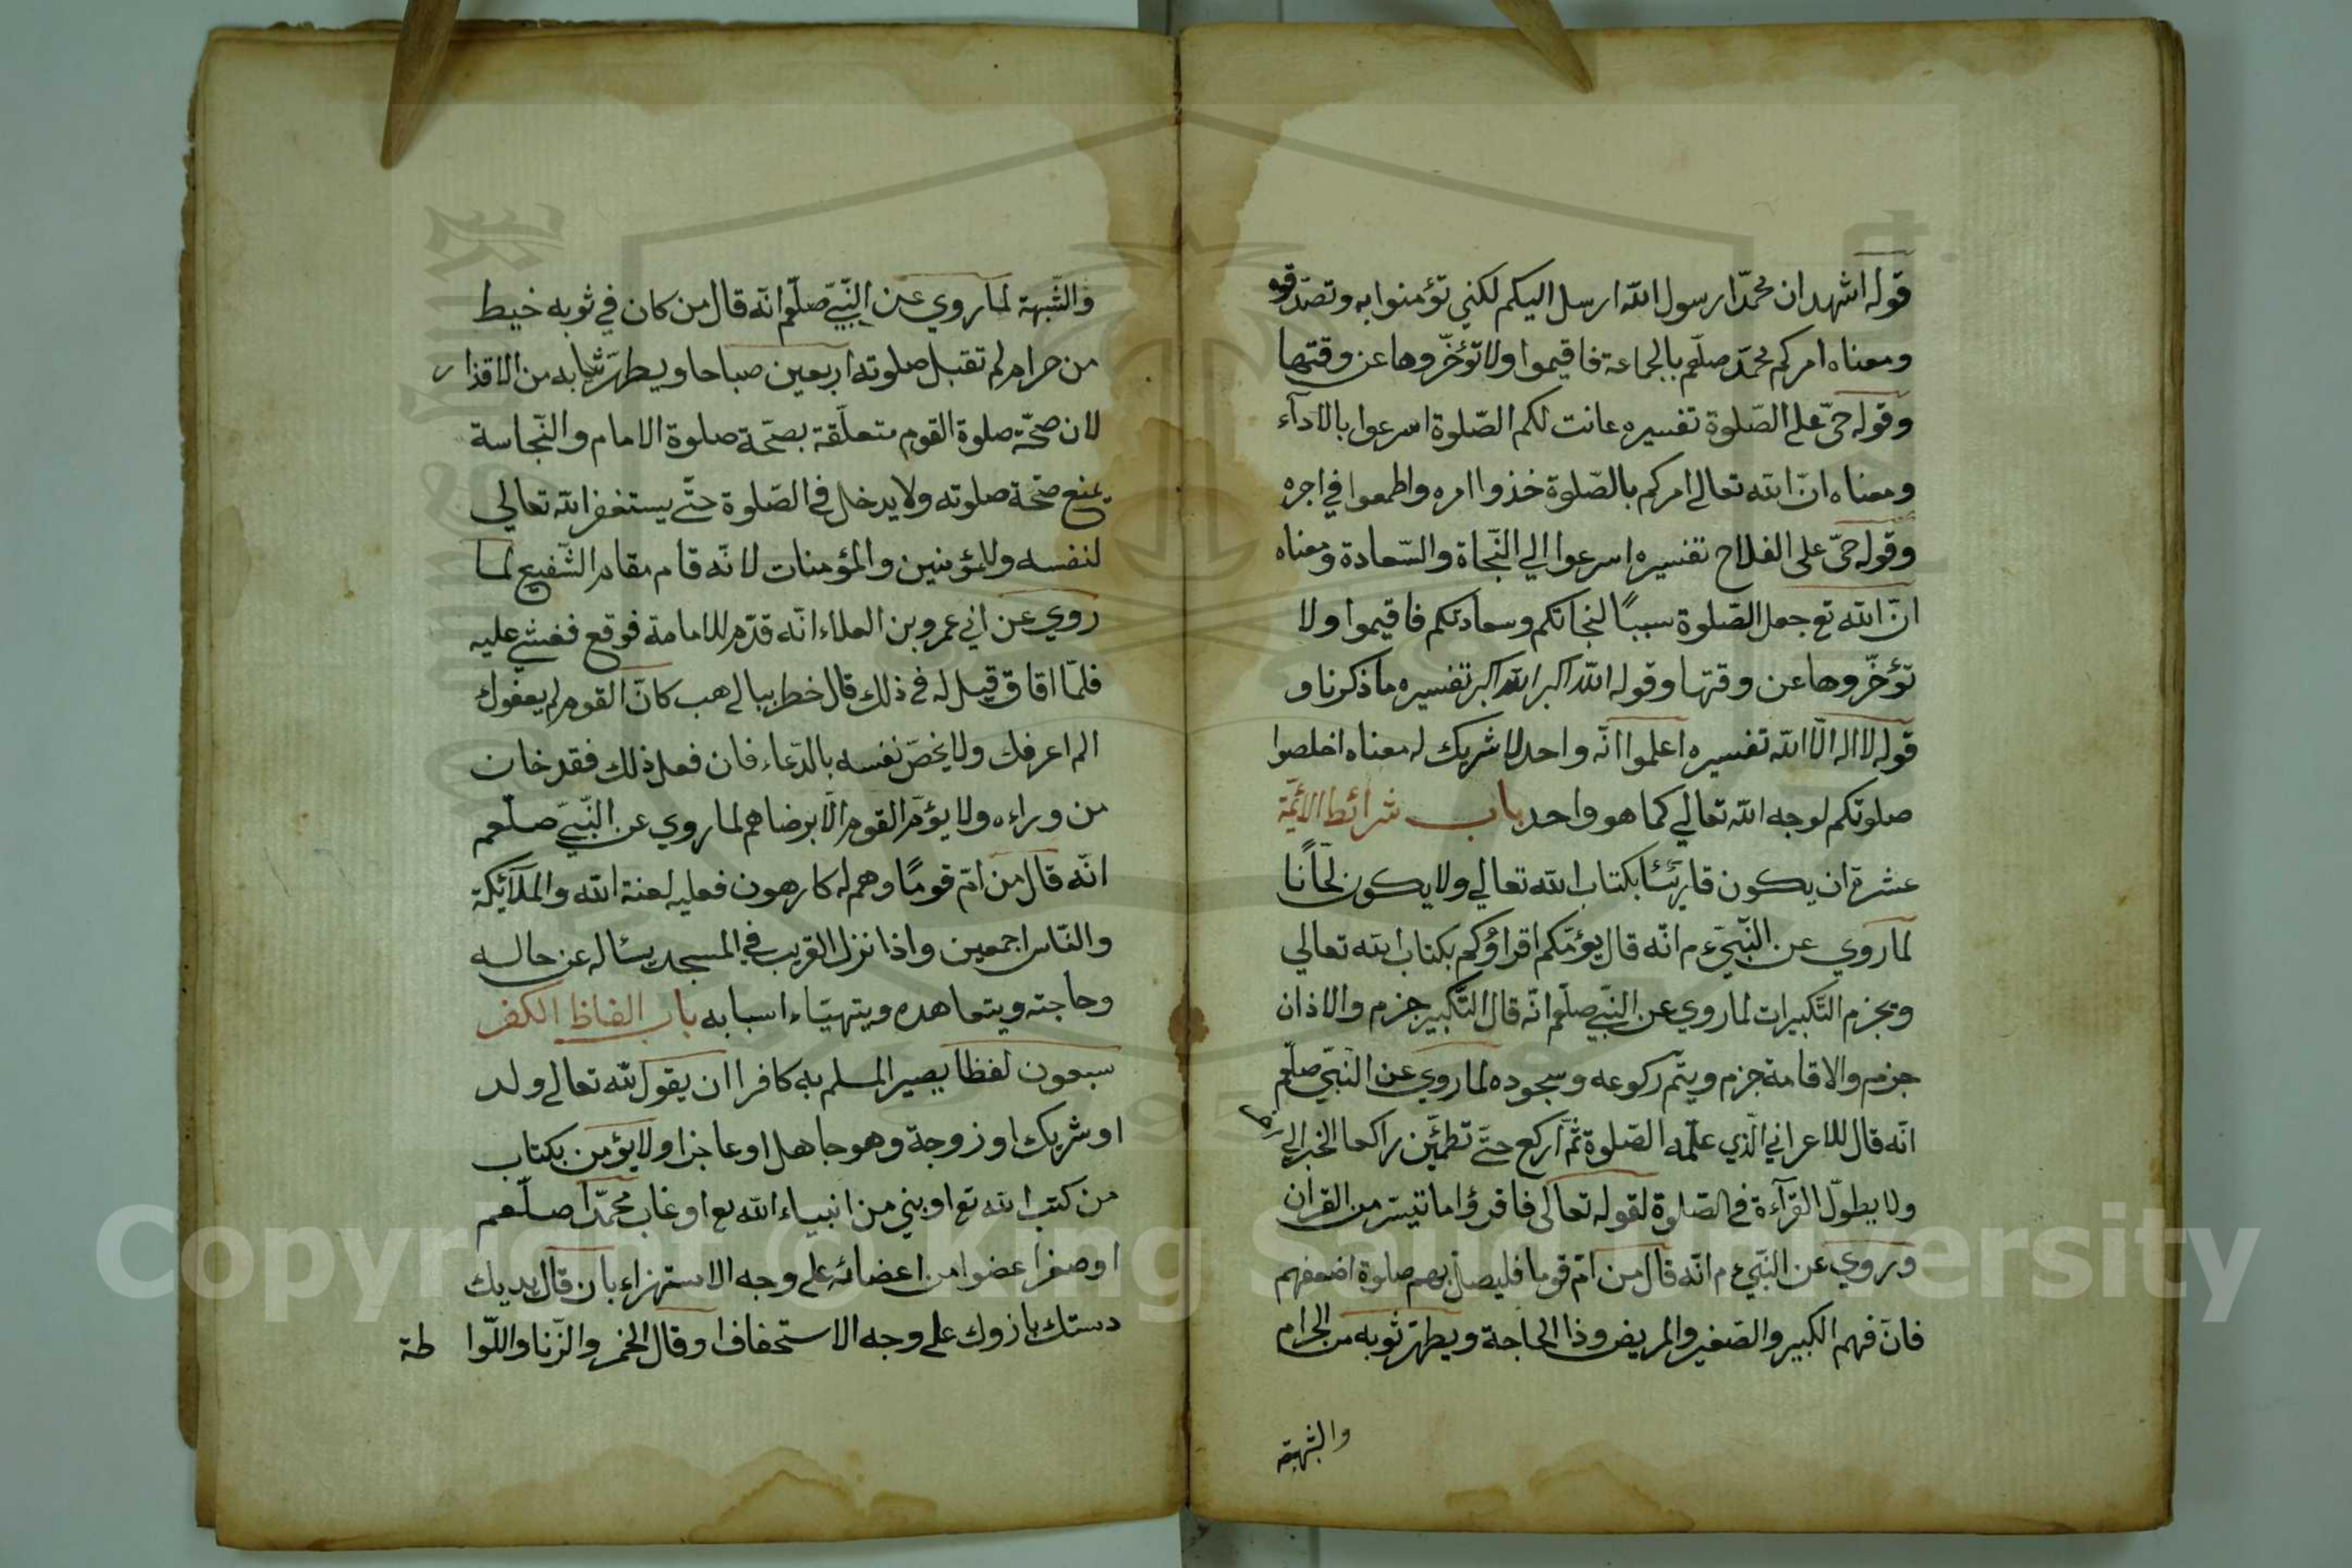 قوله اشهد ان محمّدا رسول الله ارسل اليكم لكني تؤمنوا به وتصدّقوه
ومعناه امركم محمّد صلّعم بالجماعة فاقيموا ولا تؤخّروها عن وقتها
وقوله حيّ على الصّلوة تفسيره عانت لكم الصّلوة اسرعوا بالادآء
ومعناه انّ الله تعالى امركم بالصّلوة خذوا امره واطمعوا في اجره
وقوله حيّ على الفلاح تفسيره اسرعوا الي النّجاة والسّعادة ومعناه
انّ الله تع جعل الصّلوة سبباً لنجاتكم وسعادتكم فاقيموا ولا
تؤخّروها عن وقتها وقوله الله اكبر الله اكبر تفسيره ما ذكرنا و
قوله لا اله الّا الله تفسيره اعلموا انّه واحد لا شريك له معناه اخلصوا
صلوتكم لوجه الله تعالي كما هو واحد باب شرائط الائمّة
عشرة ان يكون قارئا بكتاب الله تعالي ولا يكون لحّانًا
لما روي عن النّبيّ ءم انّه قال يؤمّكم اقراؤكم بكتاب الله تعالي
ويجزم التّكبيرات لما روي عن النّبيّ صلّم انّه قال التّكبير جزم والاذان
جزم والاقامة جزم ويتّم ركوعه وسجوده لما روي عن النّبيّ صلّعم
انّه قال للاعرابي الّذي علّمه الصّلوة ثمّ اركع حتّي تطمئن راكعا الخبر الي
ولا يطوّل القرآءة في الصّلوة لقوله تعالى فاقرؤا ما تيسّر من القران
وروي عن النّبيّ ءم انّه قال من امّ قوما فليصل بهم صلوة اضعفهم
فانّ فهم الكبير والصّغير والمريض وذا الحاجة ويطهّر ثوبه من الحرام
والشّبهة
والشّبهة لما روي عن النّبيّ صلّم انّه قال من كان في ثوبه خيط
من حرام لم تقبل صلوته اربعين صباحا ويطهّر ثيابه من الاقذار
لان صحّة صلوة القوم متعلّقة بصحّة صلوة الامام والنّجاسة
يمنع صحّة صلوته ولا يدخل في الصّلوة حتّي يستغفر الله تعالي
لنفسه وللمؤمنين والمؤمنات لانّه قام مقام الشّفيع لما
روي عن ابي عمرو بن العلاء انّه قدّم للامامة فوقع فغشي عليه
فلمّا افاق قيل له في ذلك قال خطر ببالي هب كانّ القوم لم يعرفوك
الم اعرفك ولا يخصّ نفسه بالدّعاء فان فعل ذلك فقد خان
من وراءه ولا يؤمّ القوم الّا برضاهم لما روي عن النّبيّ صلّعم
انّه قال من امّ قومًا وهم له كارهون فعليه لعنة الله والملآئكة
والنّاس اجمعين واذا نزل الغريب في المسجد يسئاله عن حاله
وحاجته ويتعاهده ويتهيّاء اسبابه باب الفاظ الكفر
سبعون لفظا يصير المسلم به كافرا ان يقول لله تعالى ولد
او شريك او زوجة وهو جاهل او عاجز اولا يؤمن بكتاب
من كتب الله تع او بنبي من انبياء الله تع او عاب محمّدا صلّعم
او صغر اعضوا من اعضائه على وجه الاستهزاء بان قال بديك
دستك بازوك على وجه الاستحفافا وقال الخمر والزّنا واللّوا طة